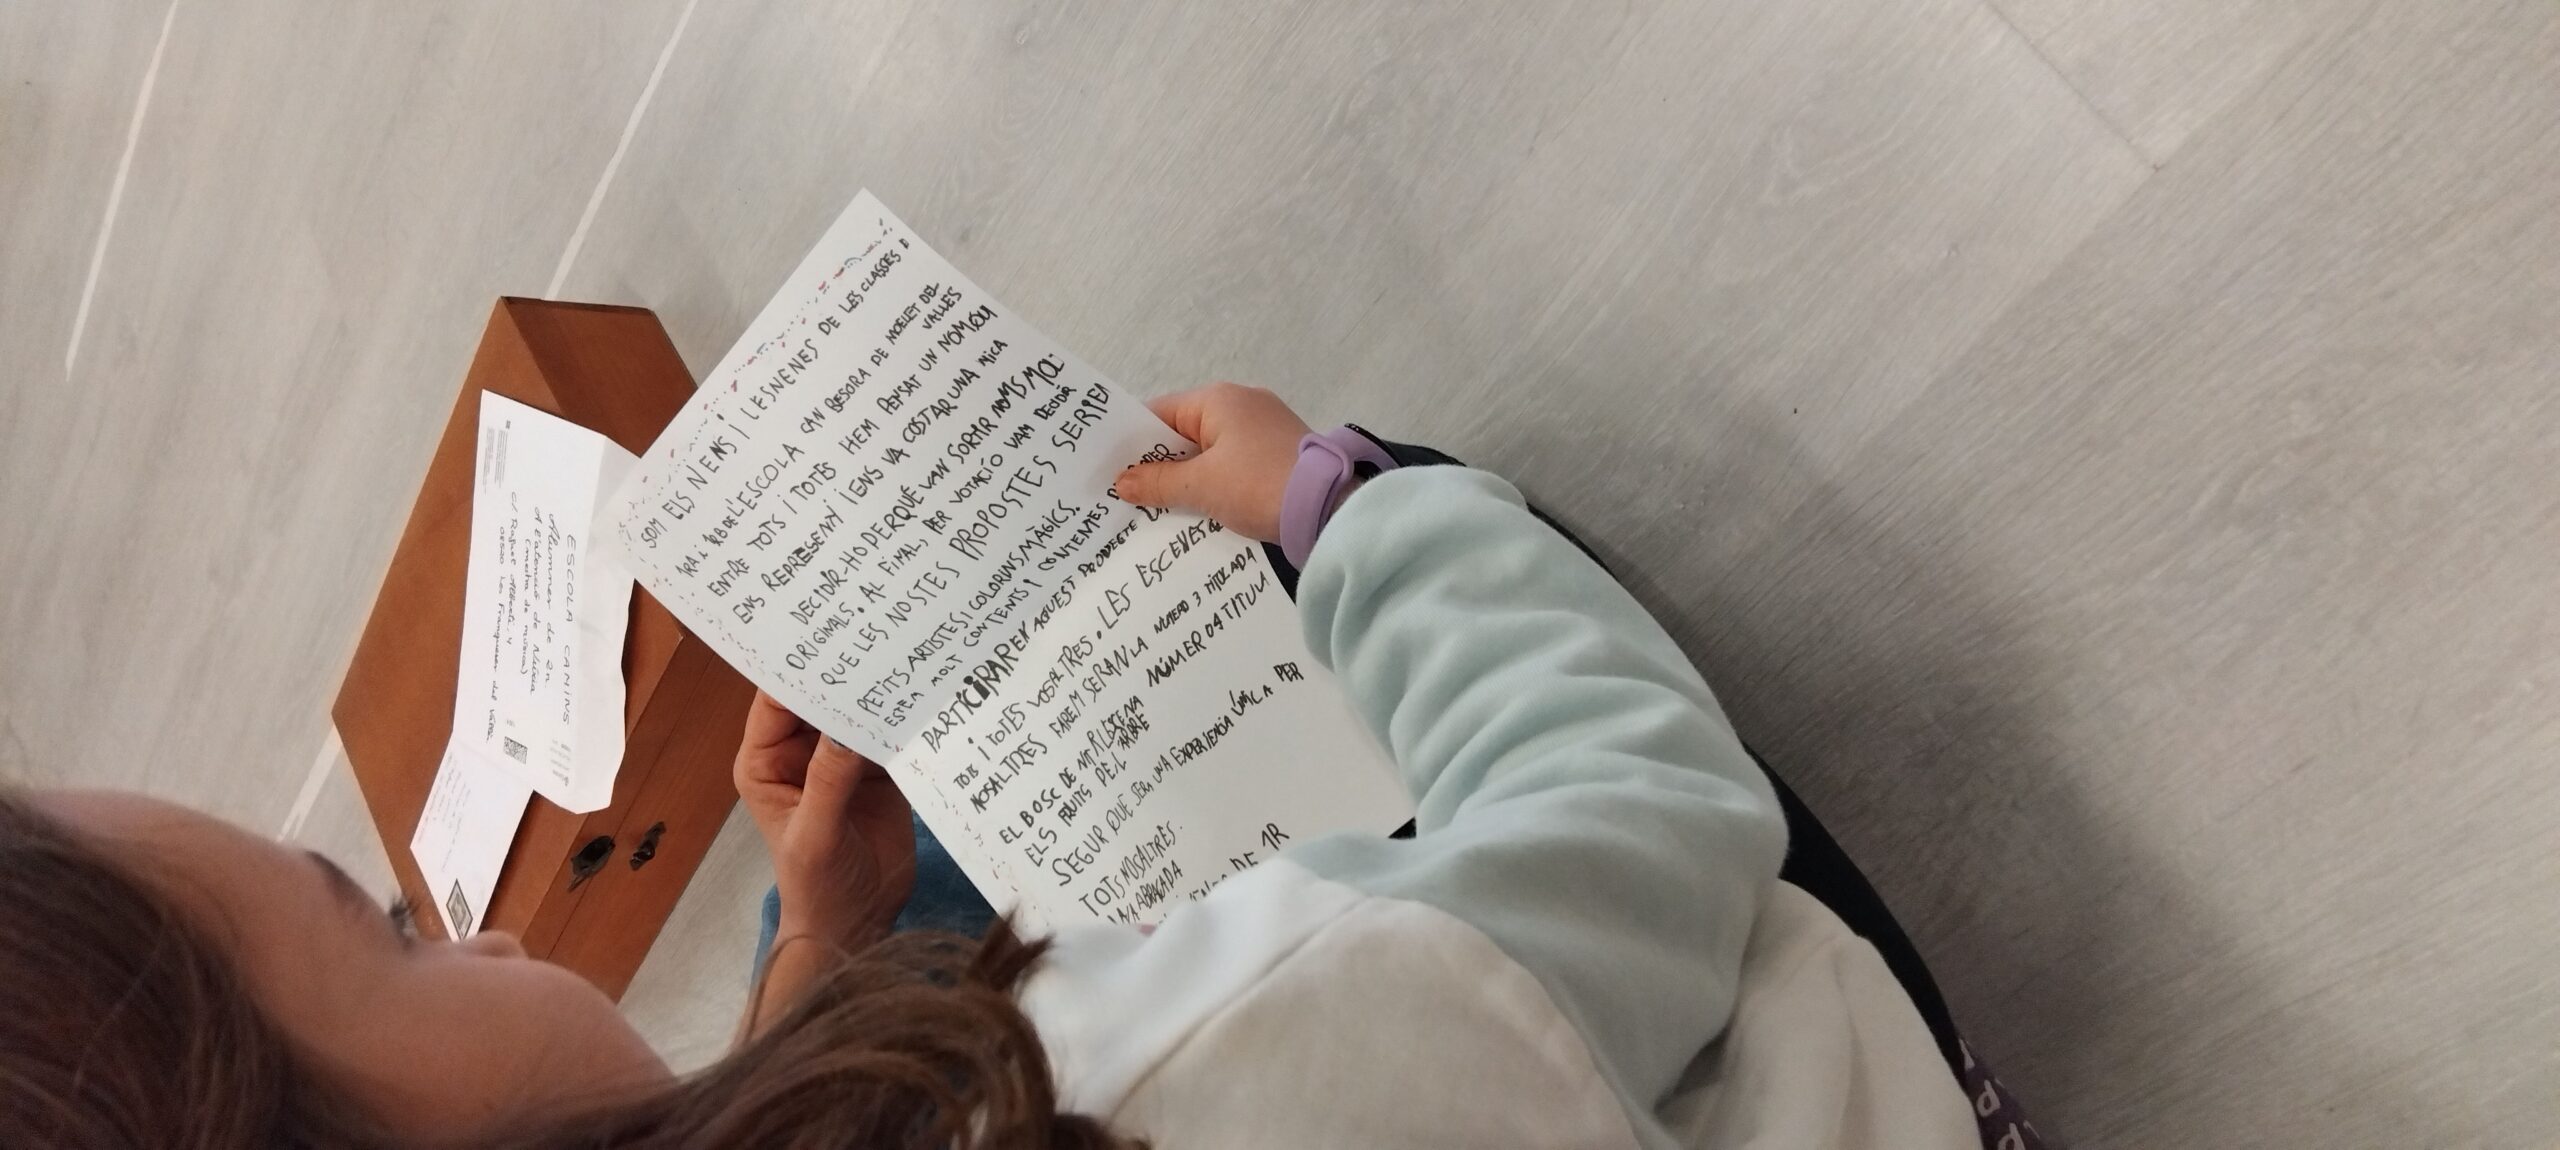 SOM ELS NENS I LES NENES DE LES CLASSES D
1RA i 1RB DE L'ESCOLA CAN BESORA DE MOLLET DEL
VALLES
ENTRE TOTS I TOTES HEM PENSAT UN NOM QU
ENS REPRESENTI I ENS VA COSTAR UNA MICA
DECIDIR-HO PERQUÈ VAN SORTIR NOMS MOL
ORIGINALS. AL FINAL, PER VOTACIÓ VAM DECIDIR
QUE LES NOSTES PROPOSTES SERIEN
PETITS ARTISTES I COLORINS MÀGICS.
ESTEM MOLT CONTENTS I CONTENTES
PARTICIPAREM AQUEST PROJECTE
TOTS I TOTES VOSALTRES. LES ESCENES
NOSALTRES FAREM SERAN LA NUMERO 3 TITOLADA
EL BOSC DE NIT I L'ESCENA NÚMERO 9 TITULA
ELS FRUITS DE L'ARBRE
SEGUR QUE SERA UNA EXPERIÈNCIA ÚNICA PER
TOTS NOSALTRES.
UNA ABRAÇADA
DE 1R
ESCOLA CAMINS
Alumnes de 2n
A l'atenció de Núria
(mestra de música)
C/ Rafael Alberti, 4
08520 Les Franqueses del Vallès